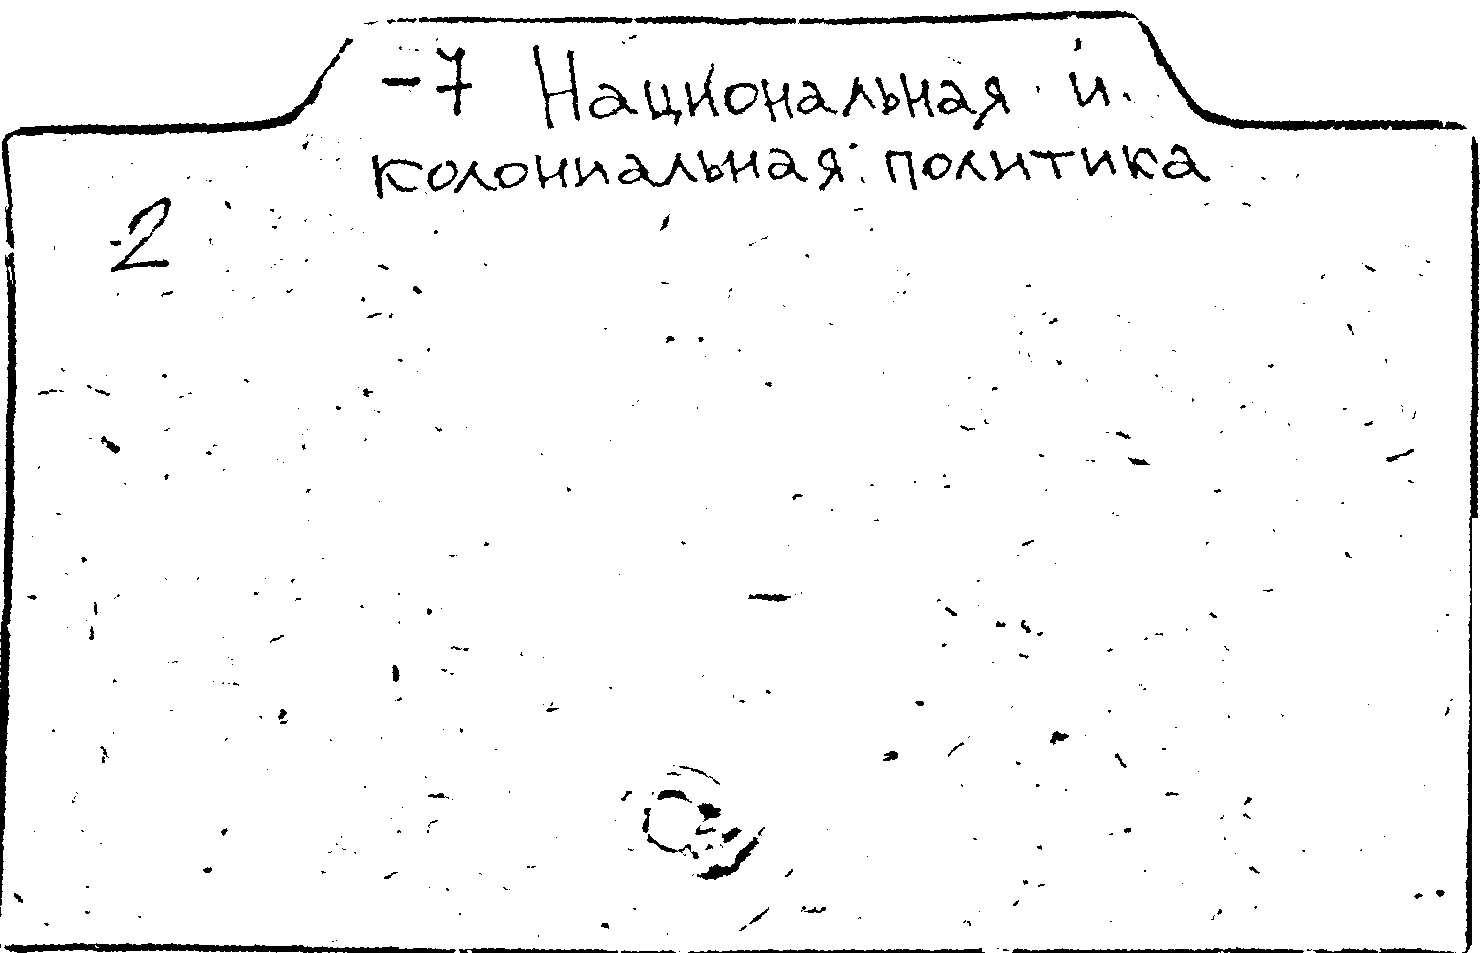 -7 Национальная и
колониальная политика
-2